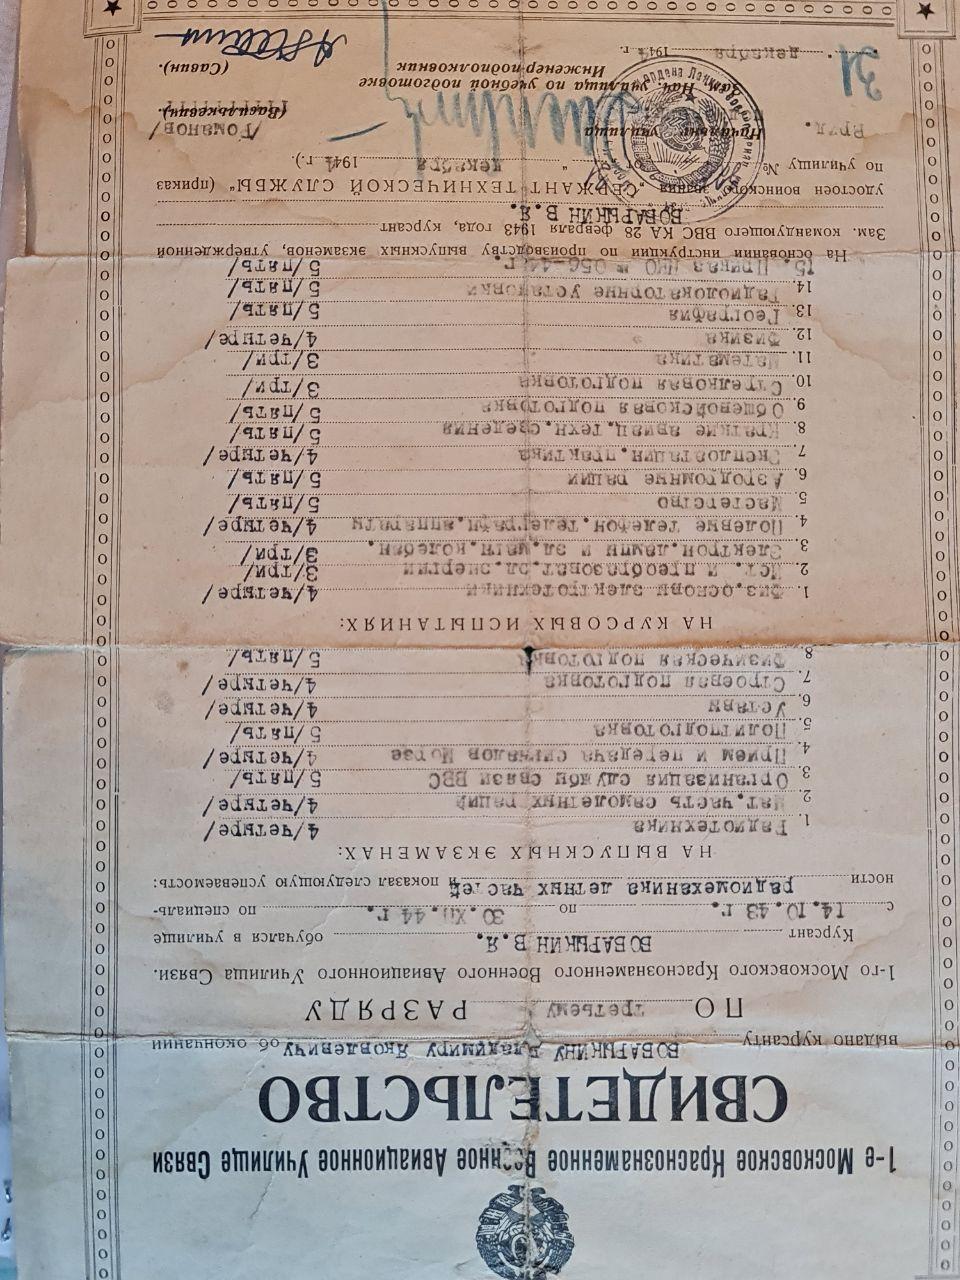 1-е Московское Краснознаменное Военное Авиационное Училище Связи
СВИДЕТЕЛЬСТВО
выдано курсанту БОБАРЫКИНУ Владимиру Яковлевичу об окончании
ПО третьему РАЗРЯДУ
1-го Московского Краснознаменного Военного Авиационного Училища Связи.
Курсант БОБАРЫКИН В.Я. обучался в училище
с 14.10.43 г. по 30.XII.44 г. по специаль-
ности радиомеханика летных частей и показал следующую успеваемость:
НА ВЫПУСКНЫХ ЭКЗАМЕНАХ:
1. Радиотехника 4/четыре/
2. Мат.часть самолетных раций 4/четыре/
3. Организация службы связи ВВС 5/пять/
4. Прием и передача сигналов Морзе 4/четыре/
5. Политподготовка 5/пять/
6. Уставы 4/четыре/
7. Строевая подготовка 4/четыре/
8. Физическая подготовка 5/пять/
НА КУРСОВЫХ ИСПЫТАНИЯХ:
1. Физ.основы электротехники 4/четыре/
2. Ист. и преобразоват.эл.энергии 3/три/
3. Электрон.лампы и эл.магн.колебан. 3/три/
4. Полевые телефон.телеграфн.аппараты 4/четыре/
5. Мастерство 5/пять/
6. Аэродромные рации 5/пять/
7. Эксплоатацин.практика 4/четыре/
8. Краткие авиац.техн.сведения 5/пять/
9. Общевойсковая подготовка 5/пять/
10. Стрелковая подготовка 3/три/
11. Математика 3/три/
12. Физика 4/четыре/
13. География 5/пять/
14. Радиолокаторные установки 5/пять/
15. Приказ НКО № 056-44 г. 5/пять/
На основании инструкции по производству выпускных экзаменов, утвержденной
Зам. командующего ВВС КА 28 февраля 1943 года, курсант
БОБАРЫКИН В.Я.
удостоен воинского звания „СЕРЖАНТ ТЕХНИЧЕСКОЙ СЛУЖБЫ“ (приказ
по училищу № декабря 1944 г.).
Врид. Начальник училища /Романов/
(Василькевич)
Зам. Нач. училища по учебной подготовке
Инженер-подполковник (Савин).
31 декабря 1944 г.